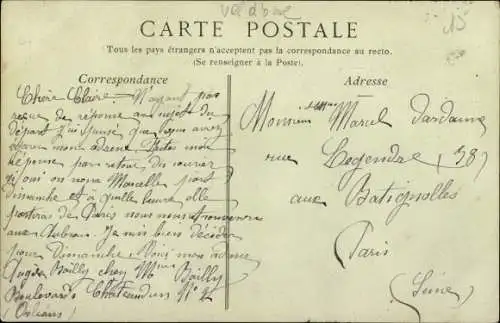 Val d'Oise
15
CARTE POSTALE
Tous les pays étrangers n'acceptent pas la correspondance au recto.
(Se renseigner à la Poste).
Correspondance
Chère Claire - N'ayant pas
reçue de réponse au sujet du
départ j'ai pensé que vous aviez
mon adresse. Faites moi
réponse par retour du courrier
si oui ou non Marcelle part
dimanche et à quelle heure elle
partiras de Paris nous nous trouverons
aux Aubrais. Je suis bien décidée
pour Dimanche. Voici mon adresse
Bailly chez Mme Bailly
Boulevard Chateaudun No 2
(Orléans)
Adresse
Monsieur et Mme Marcel Dardanne
rue Legendre (38)
aux Batignolles
Paris
(Seine)